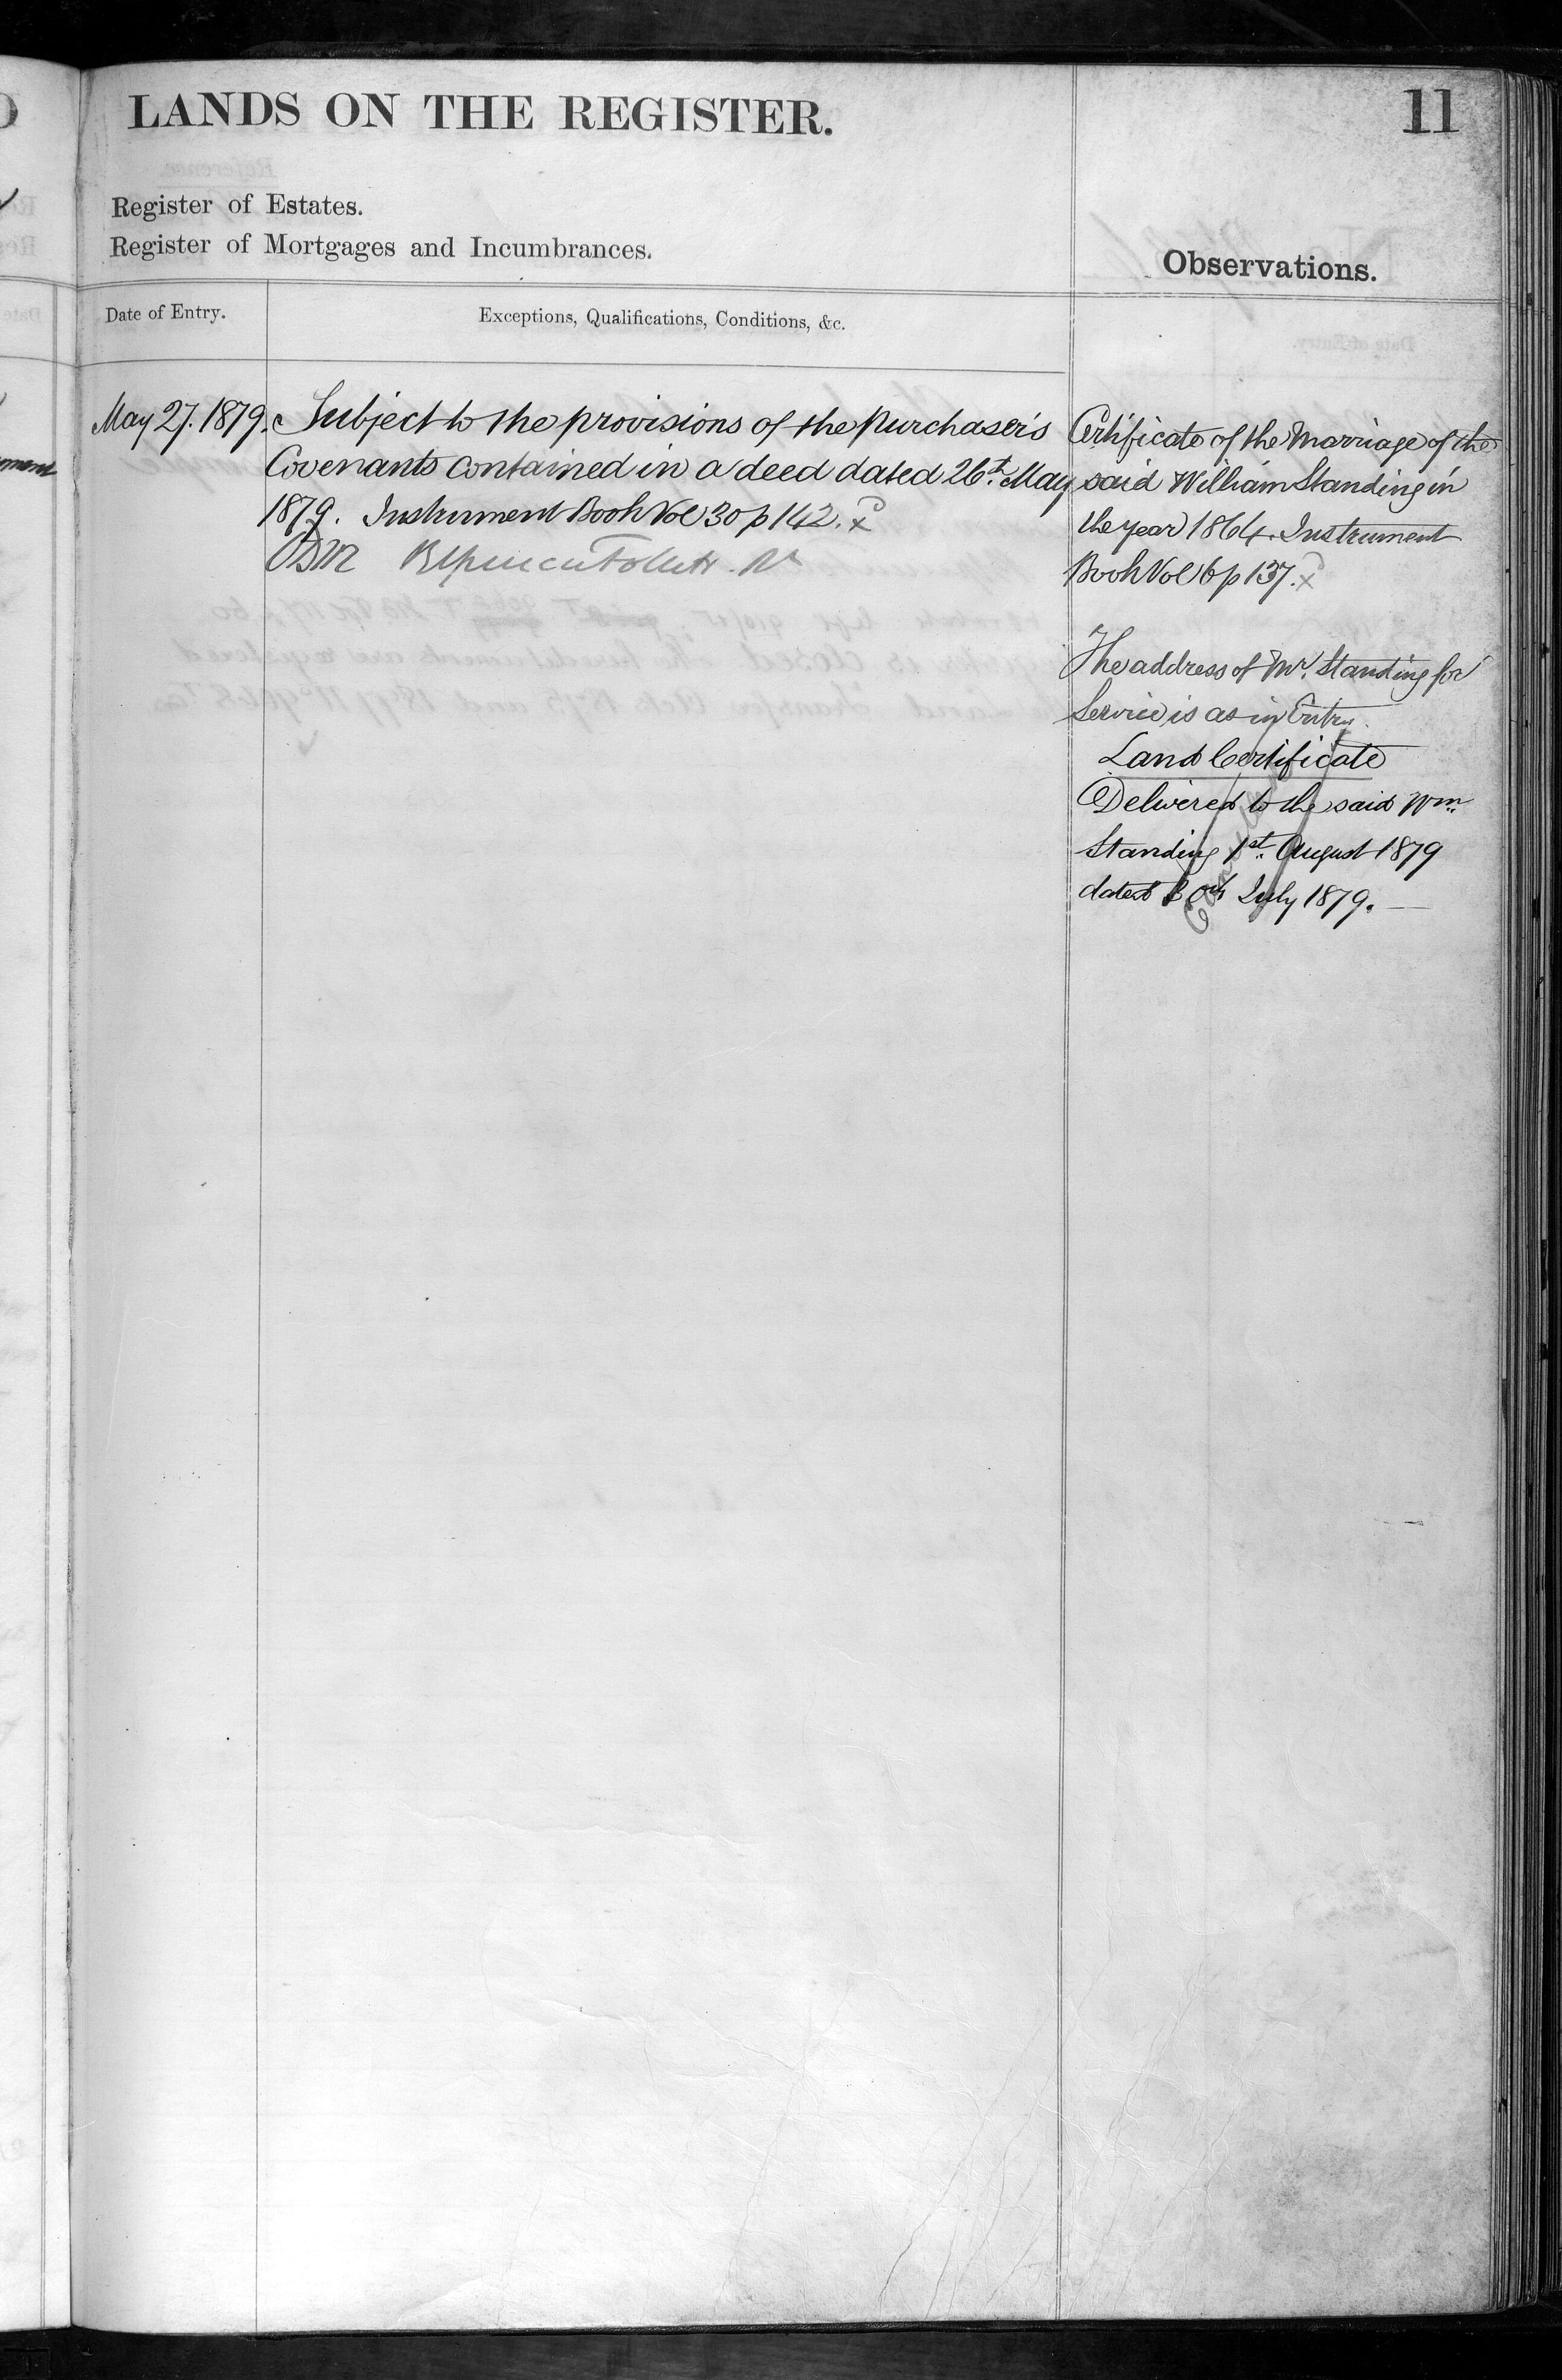 LANDS ON THE REGISTER.
11
Register of Estates.
Register of Mortgages and Incumbrances.
Observations.
Date of Entry.
Exceptions, Qualifications, Conditions, &c.
May 27. 1879.
Subject to the provisions of the Purchaser's
Covenants contained in a deed dated 26th May
1879. Instrument Book Vol 30 p 142. x
Certificate of the Marriage of the
said William Standing in
the year 1864. Instrument
Book Vol 6 p 137. x
The address of Mr. Standing for
Service is as in Entry.
Land Certificate
Delivered to the said Wm.
Standing 1st August 1879
dated 30th July 1879.